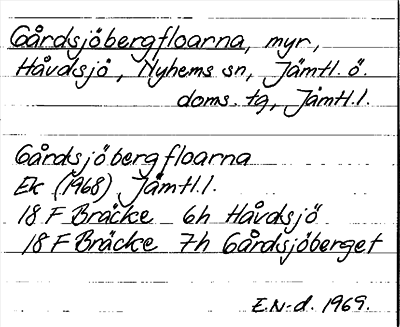 Gårdsjöbergfloarna, myr,
Håvdsjö, Nyhems sn, Jämtl. ö.
doms. tg, Jämtl. l.
Gårdsjöbergfloarna
Ek (1968) Jämtl. l.
18 F Bräcke 6h Håvdsjö
18 F Bräcke 7h Gårdsjöberget
E.N-d. 1969.